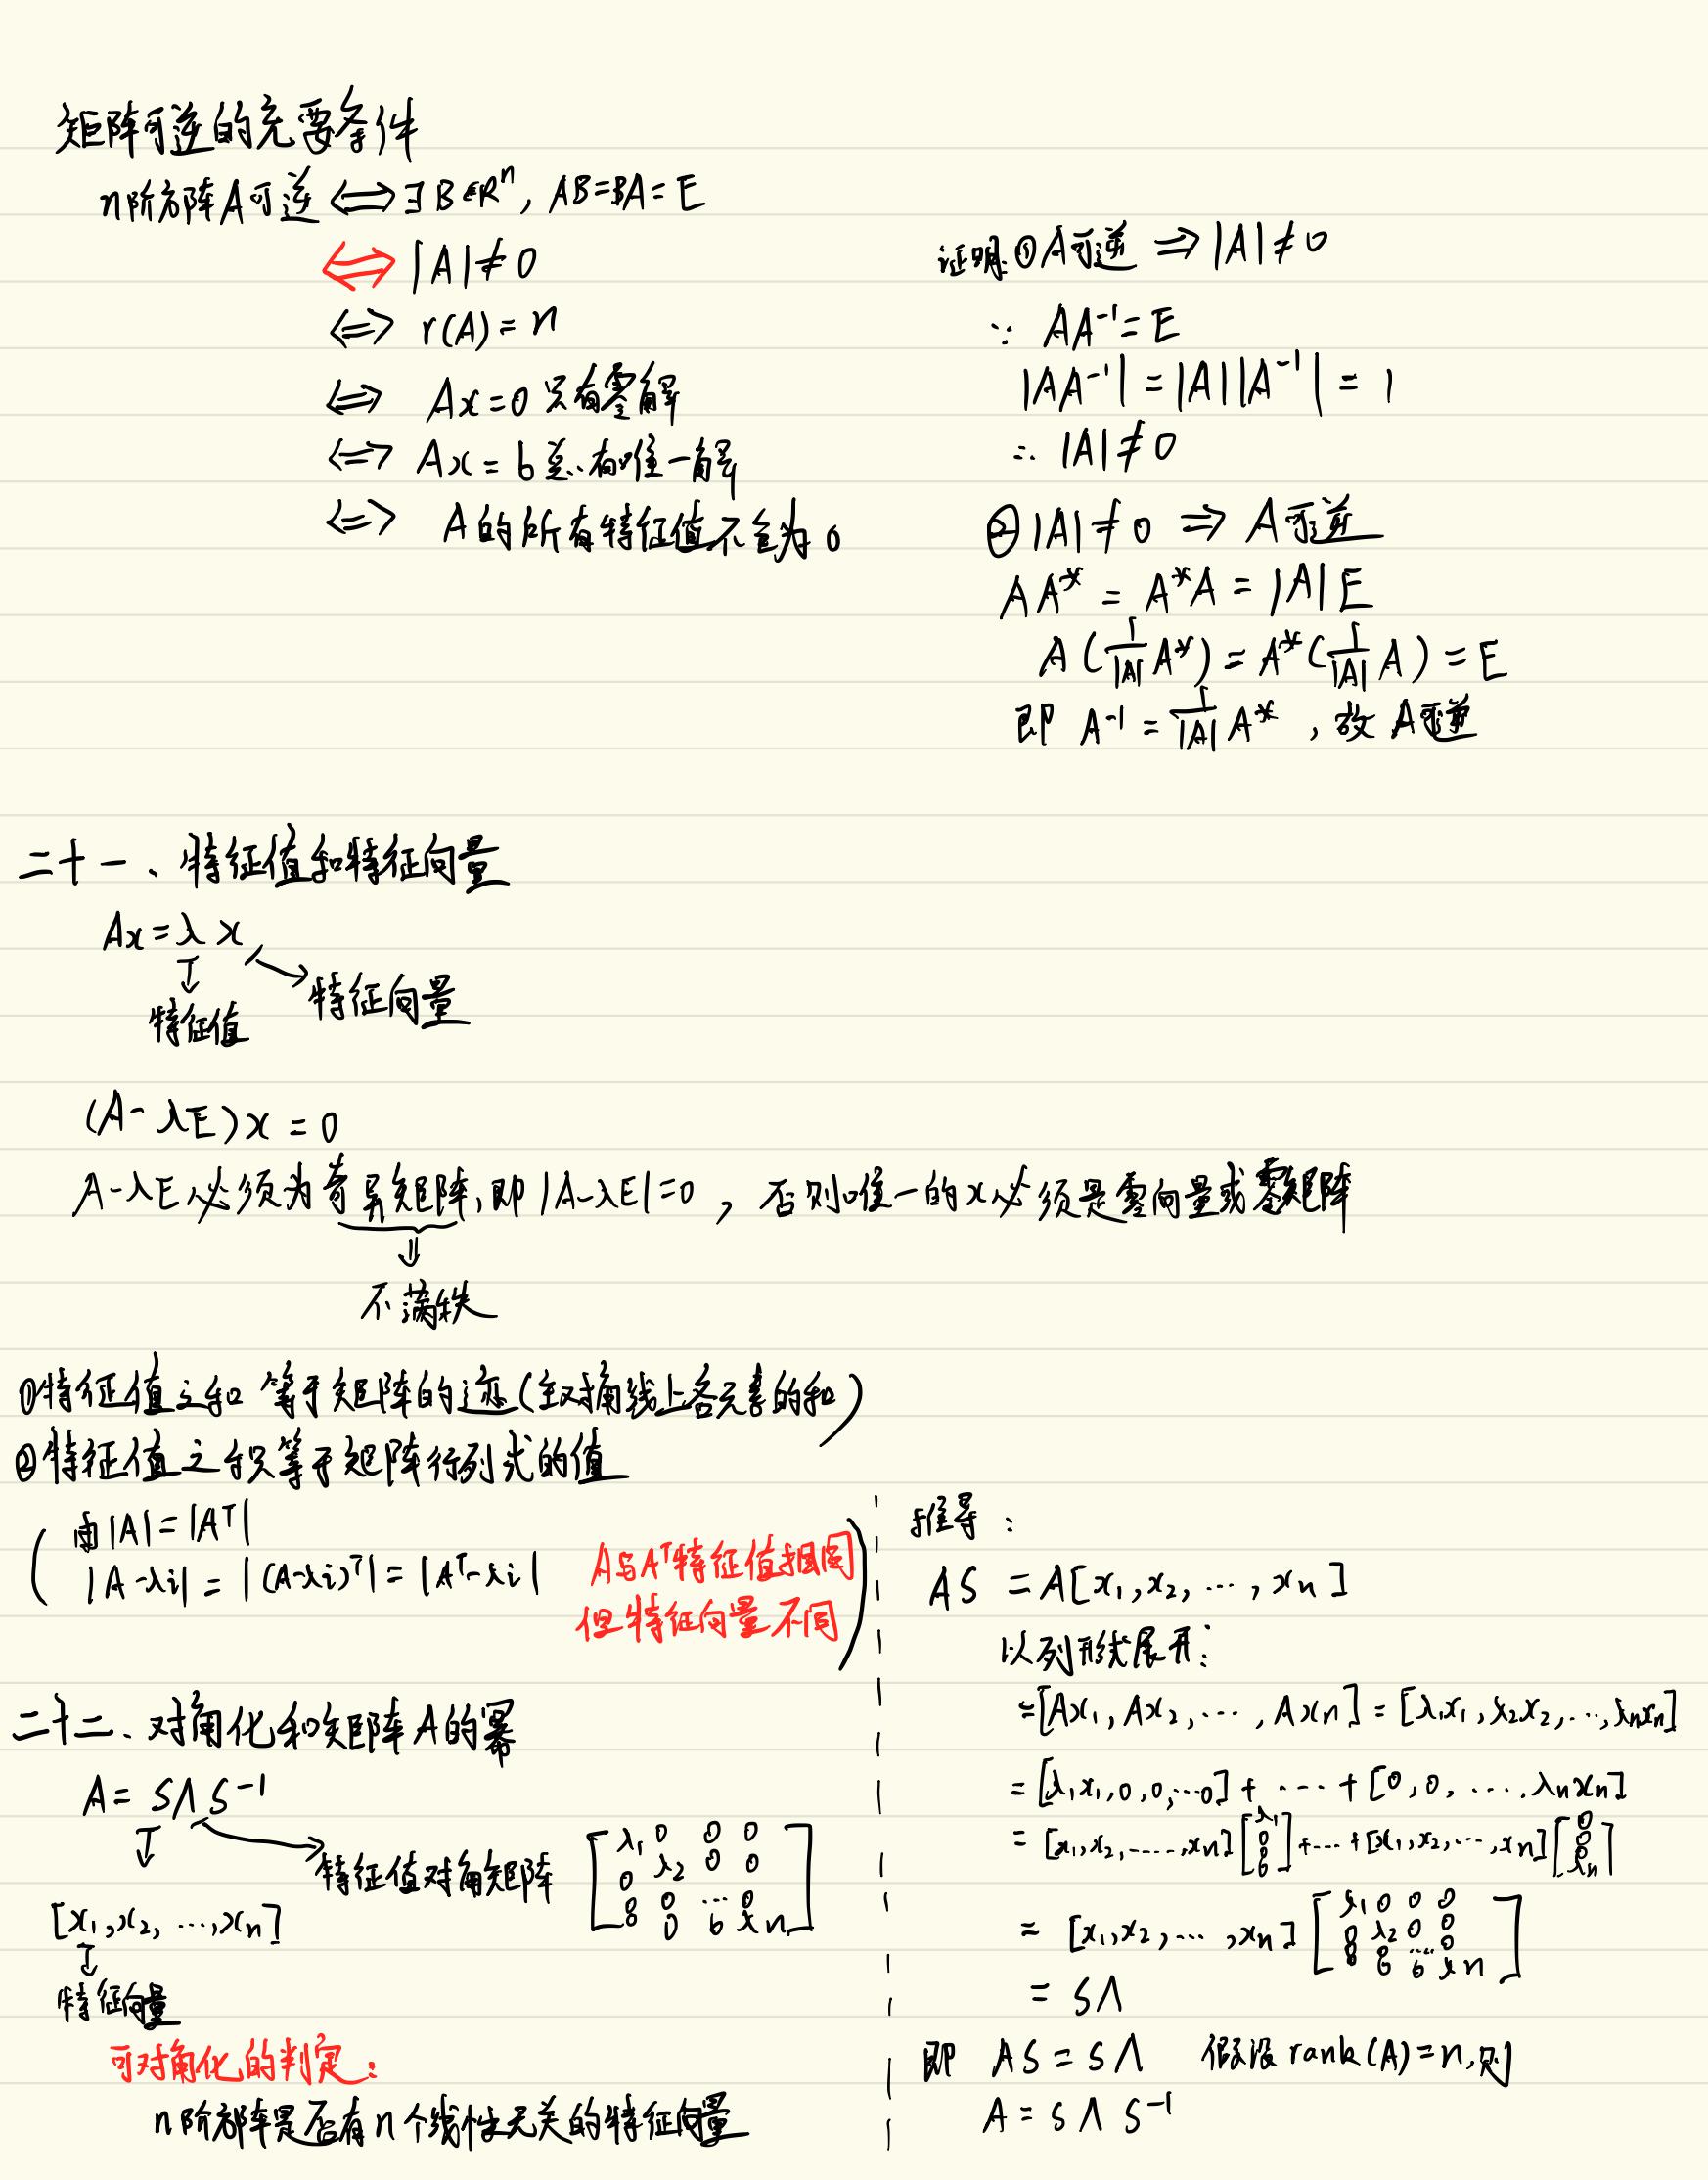 矩阵可逆的充要条件
n阶方阵A可逆 ⟺ ∃B∈Rⁿ, AB=BA=E
⟺ |A|≠0
⟺ r(A)=n
⟺ Ax=0 只有零解
⟺ Ax=b 总有唯一解
⟺ A的所有特征值不全为0
证明:①A可逆 ⇒ |A|≠0
∵ AA⁻¹=E
|AA⁻¹|=|A||A⁻¹|=1
∴ |A|≠0
②|A|≠0 ⇒ A可逆
AA*=A*A=|A|E
A(1/|A| A*)=A*(1/|A| A)=E
即 A⁻¹=1/|A| A*,故A可逆
二十一、特征值和特征向量
Ax=λx
特征向量
特征值
(A-λE)x=0
A-λE必须为奇异矩阵,即|A-λE|=0,否则唯一的x必须是零向量或零矩阵
⇓
不满秩
①特征值之和等于矩阵的迹(主对角线上各元素的和)
②特征值之积等于矩阵行列式的值
(由|A|=|Aᵀ|
|A-λi|=|(A-λi)ᵀ|=|Aᵀ-λi|
A与Aᵀ特征值相同
但特征向量不同)
二十二、对角化和矩阵A的幂
A=SΛS⁻¹
特征值对角矩阵
[λ₁ 0 0 0
0 λ₂ 0 0
0 0 ... 0
0 0 0 λn]
[x₁,x₂,...,xn]
特征向量
可对角化的判定:
n阶方阵是否有n个线性无关的特征向量
推导:
AS=A[x₁,x₂,...,xn]
以列形式展开:
=[Ax₁,Ax₂,...,Axn]=[λ₁x₁,λ₂x₂,...,λnxn]
=[λ₁x₁,0,0,...0]+....+[0,0,....,λnxn]
=[x₁,x₂,....,xn][λ₁ 0 0 0]+...+[x₁,x₂,...,xn][0 0 0 λn]
=[x₁,x₂,...,xn][λ₁ 0 0 0
0 λ₂ 0 0
0 0 ... 0
0 0 0 λn]
=SΛ
即 AS=SΛ 假设rank(A)=n,则
A=SΛS⁻¹